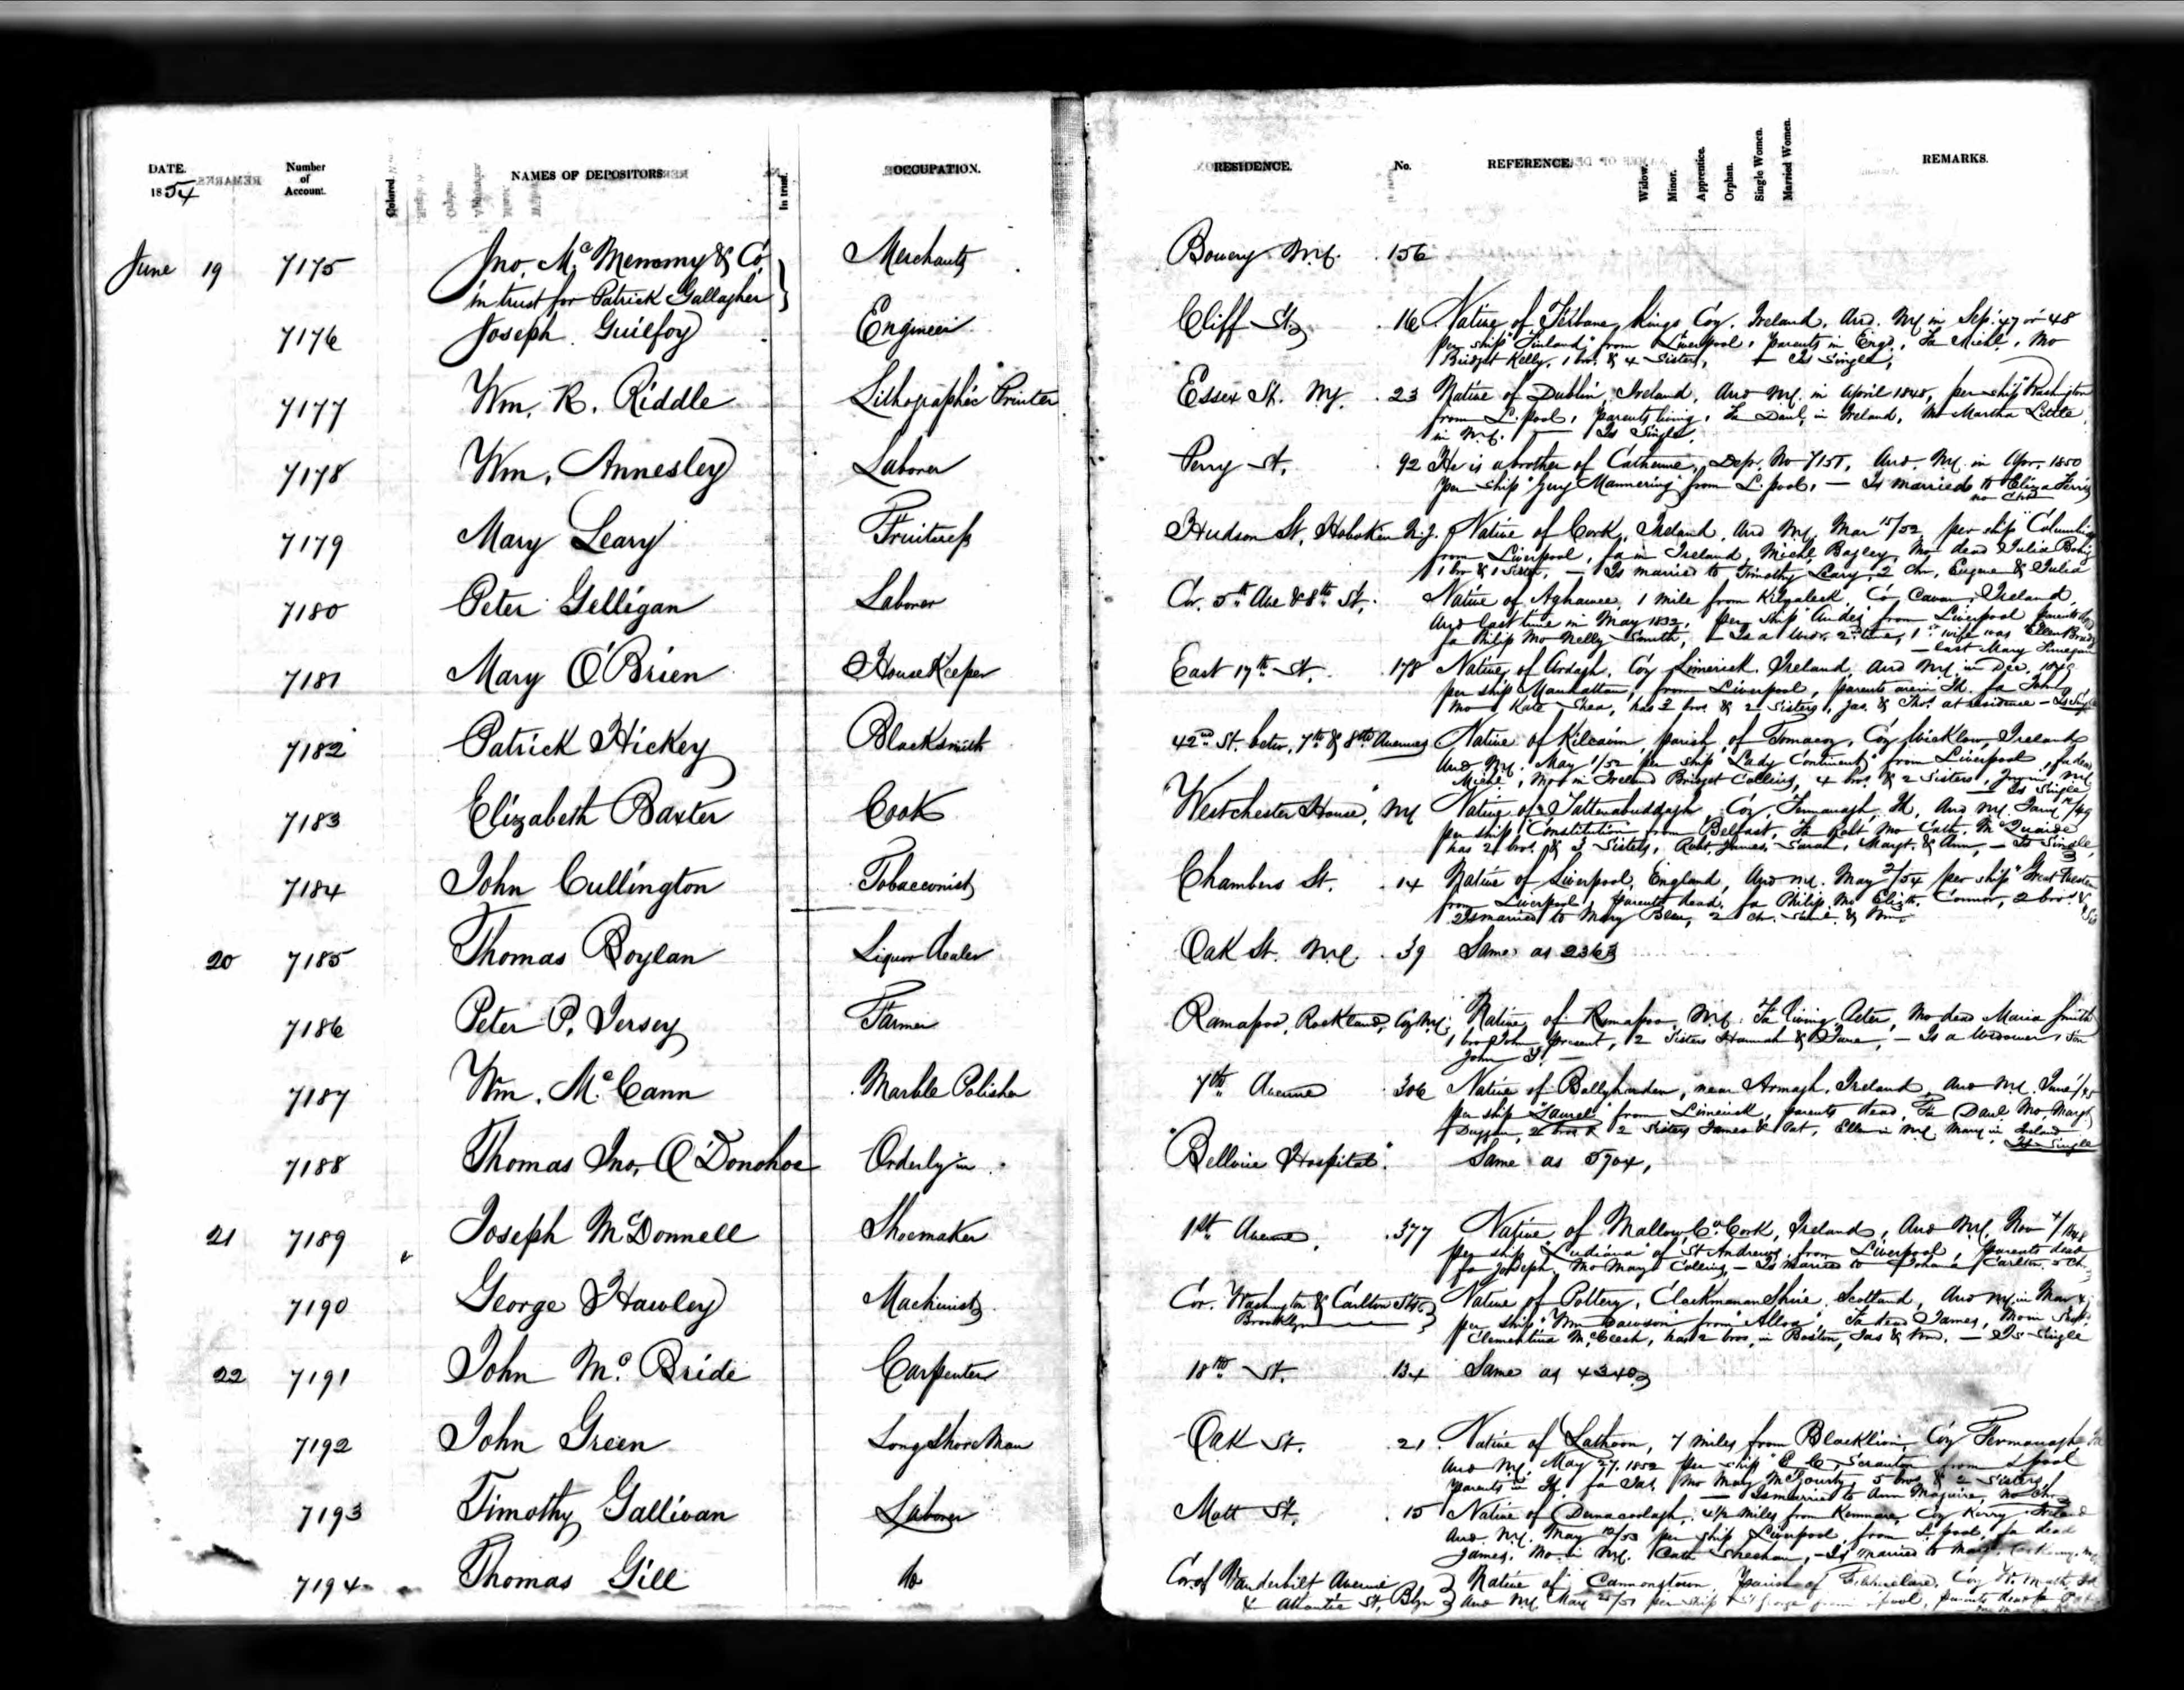 DATE. Number of Account. Colored. NAMES OF DEPOSITORS. In trust. OCCUPATION. RESIDENCE. No. REFERENCE. Widow. Minor. Apprentice. Orphan. Single Women. Married Women. REMARKS.
1854
June 19 7175 Jno. McMenomy & Co. Merchants Bowery N.Y. 156
in trust for Patrick Gallagher
7176 Joseph Guilfoy Engineer Cliff St. 16 Native of Ferbane, Kings Coy. Ireland. Arrd. NY. in Sep. 47 or 48
per ship "Finland" from Liverpool, parents in Engd., Fa Michl., Mo
Bridget Kelly, 1 bro. & 4 Sisters, — Is Single,
7177 Wm. R. Riddle Lithographic Printer Essex St. NY. 23 Native of Dublin, Ireland, Arrd NY. in April 1848, per ship "Washington
from L.pool, parents living, Fa Danl. in Ireland, Mo Martha Little
in N.Y. — Is Single.
7178 Wm. Annesley Laborer Perry St. 92 He is a brother of Catherine, Depr. No 7151, Arrd. NY. in Apr. 1850
per ship "Guy Mannering" from L.pool, — Is married to Eliza Ferris
no chn
7179 Mary Leary Fruitress Hudson St, Hoboken N.J. Native of Cork, Ireland, Arrd NY, Mar 15/52, per ship "Columbia
from Liverpool, fa in Ireland, Michl Bagley, Mo dead Julia
1 bro & 1 Sister, — Is married to Timothy Leary, 2 Chn, Eugene & Julia
7180 Peter Gelligan Laborer Cor. 5th Ave & 8th St. Native of 1 mile from Kilnaleck, Co Cavan, Ireland
Arrd last time in May 1832, per ship "Andes" from Liverpool parents
fa Philip Mo Nelly Smith, — Is a 2d time, 1st wife was Ellen Brady
— last Mary Finegan
7181 Mary O'Brien HouseKeeper East 17th St. 178 Native of Ardagh, Coy Limerick Ireland, Arrd NY. in Dec. 1849
per ship Manhattan, from Liverpool, parents are in Id. fa John
Mo Kate Shea, has 3 bros. & 2 Sisters, Jas. & Thos. at residence — Is Single
7182 Patrick Hickey Blacksmith 42nd St. betw. 7th & 8th Avenues Native of parish of Coy Wicklow, Ireland
Arrd NY. May 1/52 per ship "Lady from Liverpool, fa dead
Michl., Mo in Ireland Bridget Collins, 4 bros. & 2 Sisters, NY
— Is Single
7183 Elizabeth Baxter Cook "Westchester House", NY Native of Coy, Fermanagh, Id, Arrd NY.
per ship "Constitution" from Belfast, Fa Robt Mo Cath. McQuaide
has 2 bros. & 3 Sisters, Robt, James, Sarah, Margt. & Ann, — Is Single,
7184 John Cullington Tobacconist Chambers St. 14 Native of Liverpool, England, Arrd NY. May 2/54 per ship "Great Western
from Liverpool, parents dead. fa Philip, Mo Elizth. Connor, 2 bros. &
Is married to Mary 2 chn. & Wm.
20 7185 Thomas Boylan Liquor dealer Oak St. N.Y. 39 Same as 2363
7186 Peter P. Jersey Farmer Ramapoo, Rockland, Coy N.Y. Native of Ramapoo N.Y. Fa living Peter, Mo dead Maria Smith
1 bro John, present, 2 Sisters Hannah & Jane, — Is a Widower, 1 son
John
7187 Wm. McCann Marble Polisher 7th Avenue 306 Native of near Armagh, Ireland, Arrd NY. June
per ship "Laurel" from Limerick, parents dead, Fa Danl Mo, Margt
Duggan, 2 bros & 2 Sisters James & Pat, Ellen in NY Mary in Ireland
Is Single
7188 Thomas Jno. O'Donohoe Orderly in "Bellvue Hospital" Same as 5704,
21 7189 Joseph McDonnell Shoemaker 1st Avenue, 377 Native of Mallow, Co. Cork, Ireland, Arrd NY, Nov
per ship "Ludiana" of St Andrews, from Liverpool, parents dead
fa Joseph, Mo Mary Collins — Is married to Carlton,
7190 George Hawley Machinist Cor. Washington & Carlton Sts. Native of Pottery, Clackmananshire Scotland, Arrd NY in
Brooklyn per ship "Wm Dawson from Alloa, Fa dead James, Mo in
Clementina McCleesh, has 2 bros, in Boston, Jas & Wm. — Is Single
22 7191 John McBride Carpenter 18th St. 134 Same as 4340
7192 John Green LongShoreMan Oak St. 21 Native of 7 miles from Blacklion, Coy Fermanagh
Arrd NY. May 27, 1852 per ship Scranton from Lpool
parents in Id. fa Jas. Mo Mary 5 bros & 2 Sisters
— Is married to Ann Maguire, no Chn
7193 Timothy Gallivan Laborer Mott St. 15 Native of 4½ miles from Kenmare, Coy Kerry Ireland
Arrd NY. May per ship Liverpool, from L.pool, fa dead
James, Mo in NY. Cath Sheehan, — Is married to
7194 Thomas Gill do Cor. of Vanderbilt Avenue Native of parish of Coy W. Meath
& Atlantic St, Blyn Arrd NY. per ship from parents dead